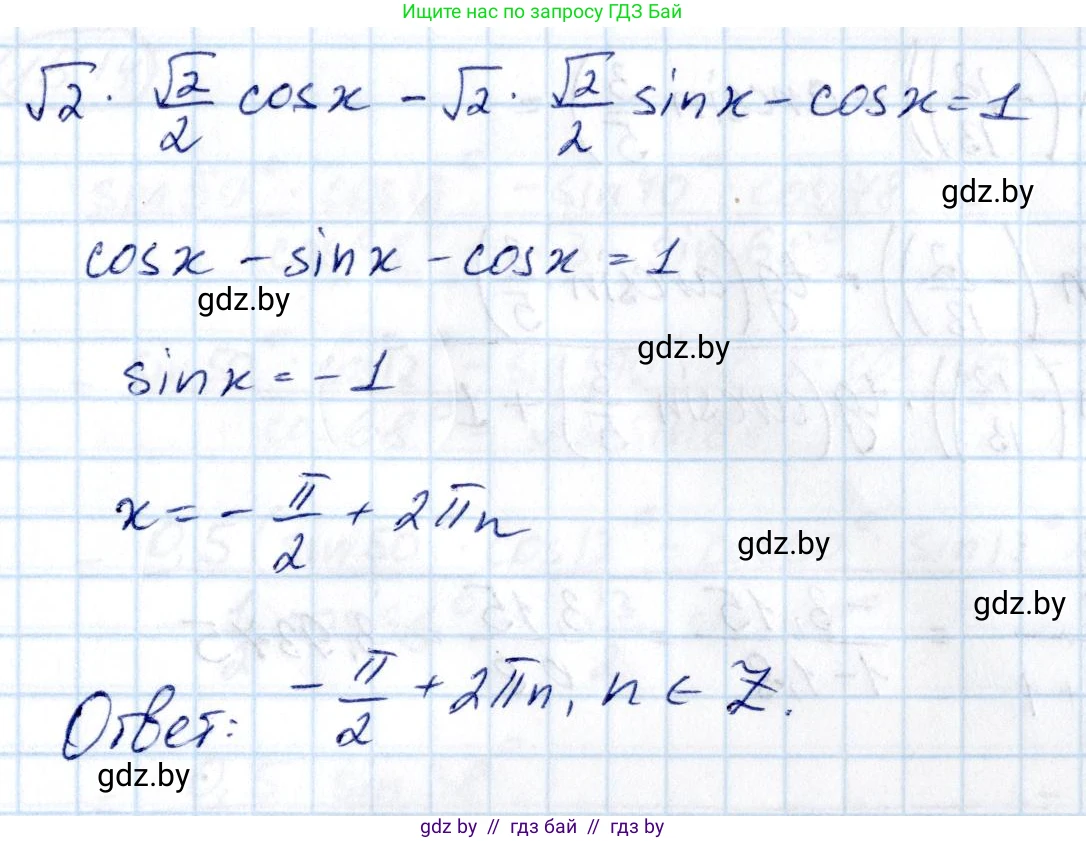 Ищите нас по запросу ГДЗ Бай
√2 · √2/2 cosx - √2 · √2/2 sinx - cosx = 1
gdz.by
cosx - sinx - cosx = 1
gdz.by
gdz.by
sinx = -1
x = - π/2 + 2πn
gdz.by
gdz.by
Ответ: - π/2 + 2πn, n ∈ Z.
gdz.by
gdz by // гдз бай // гдз by